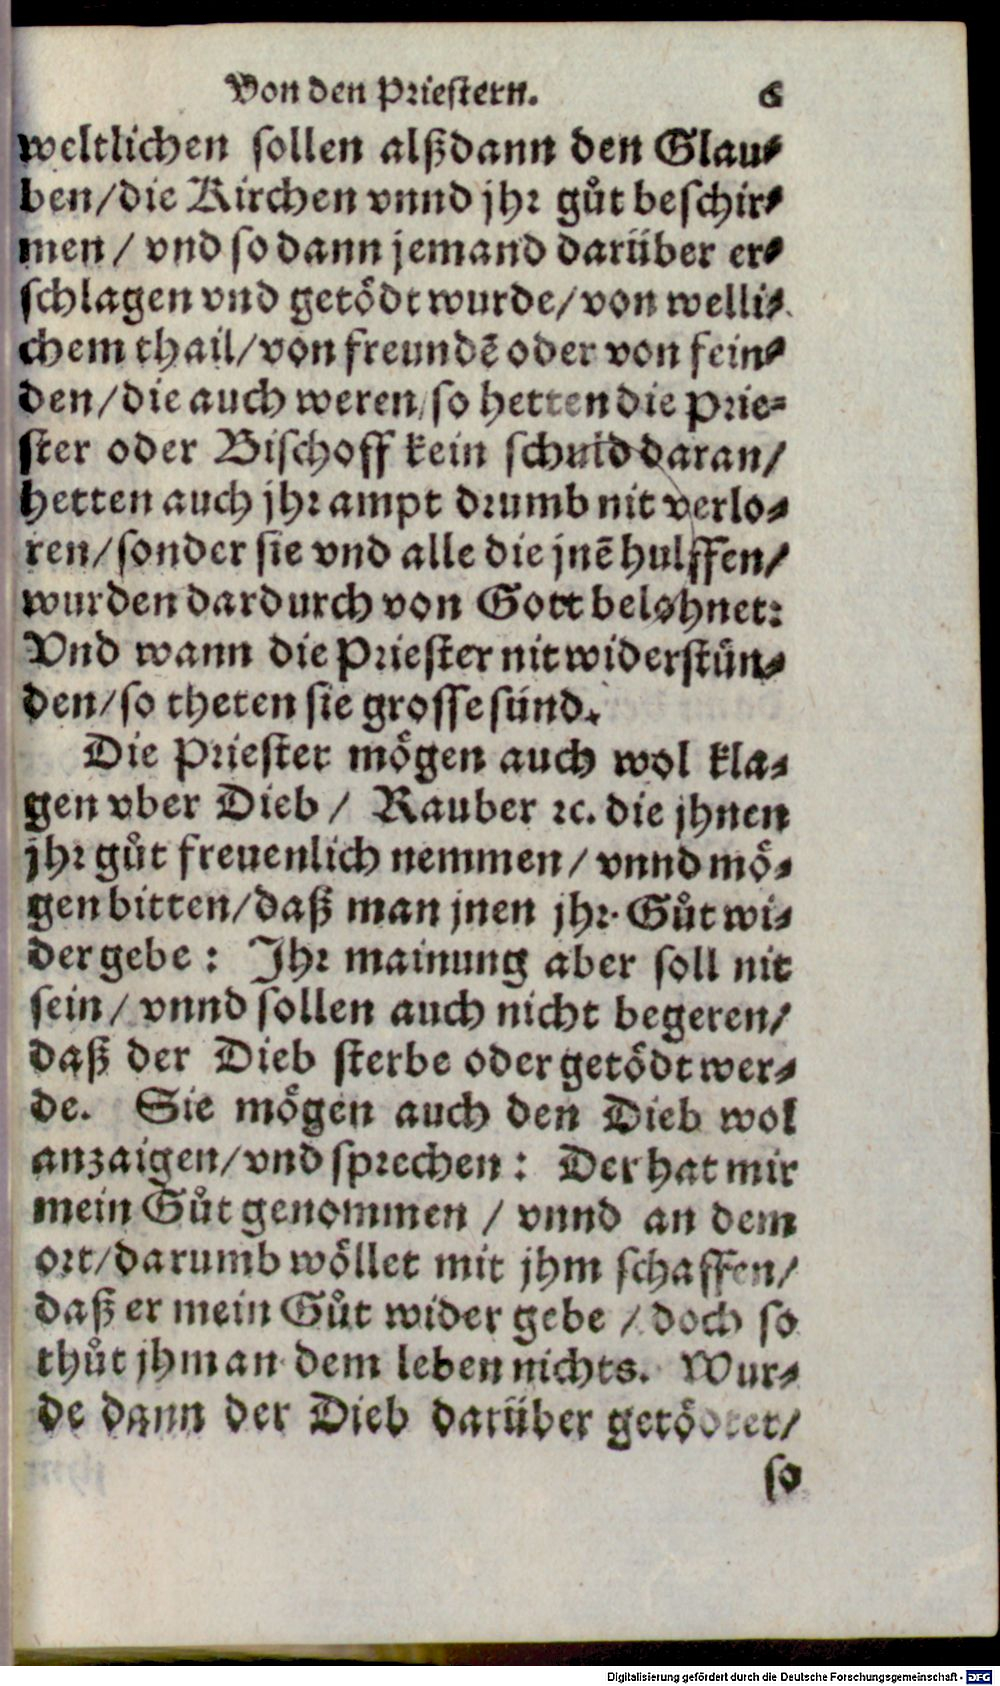 Von den Priestern. 6
weltlichen sollen alßdann den Glau-
ben/die Kirchen vnnd jhr gůt beschir-
men / vnd so dann jemand darüber er-
schlagen vnd getödt wurde/von welli-
chem thail/von freundẽ oder von fein-
den/die auch weren/so hetten die Prie-
ster oder Bischoff kein schuld daran/
hetten auch jhr ampt drumb nit verlo-
ren/sonder sie vnd alle die jnẽ hulffen/
wurden dardurch von Gott belohnet:
Vnd wann die Priester nit widerstün-
den/so theten sie grosse sünd.
Die Priester mögen auch wol kla-
gen vber Dieb / Rauber ꝛc. die jhnen
jhr gůt freuenlich nemmen / vnnd mö-
gen bitten/daß man jnen jhr Gůt wi-
der gebe : Ihr mainung aber soll nit
sein / vnnd sollen auch nicht begeren/
daß der Dieb sterbe oder getödt wer-
de. Sie mögen auch den Dieb wol
anzaigen/vnd sprechen : Der hat mir
mein Gůt genommen / vnnd an dem
ort/darumb wöllet mit jhm schaffen/
daß er mein Gůt wider gebe / doch so
thůt jhm an dem leben nichts. Wur-
de dann der Dieb darüber getödtet/
so
Digitalisierung gefördert durch die Deutsche Forschungsgemeinschaft - DFG